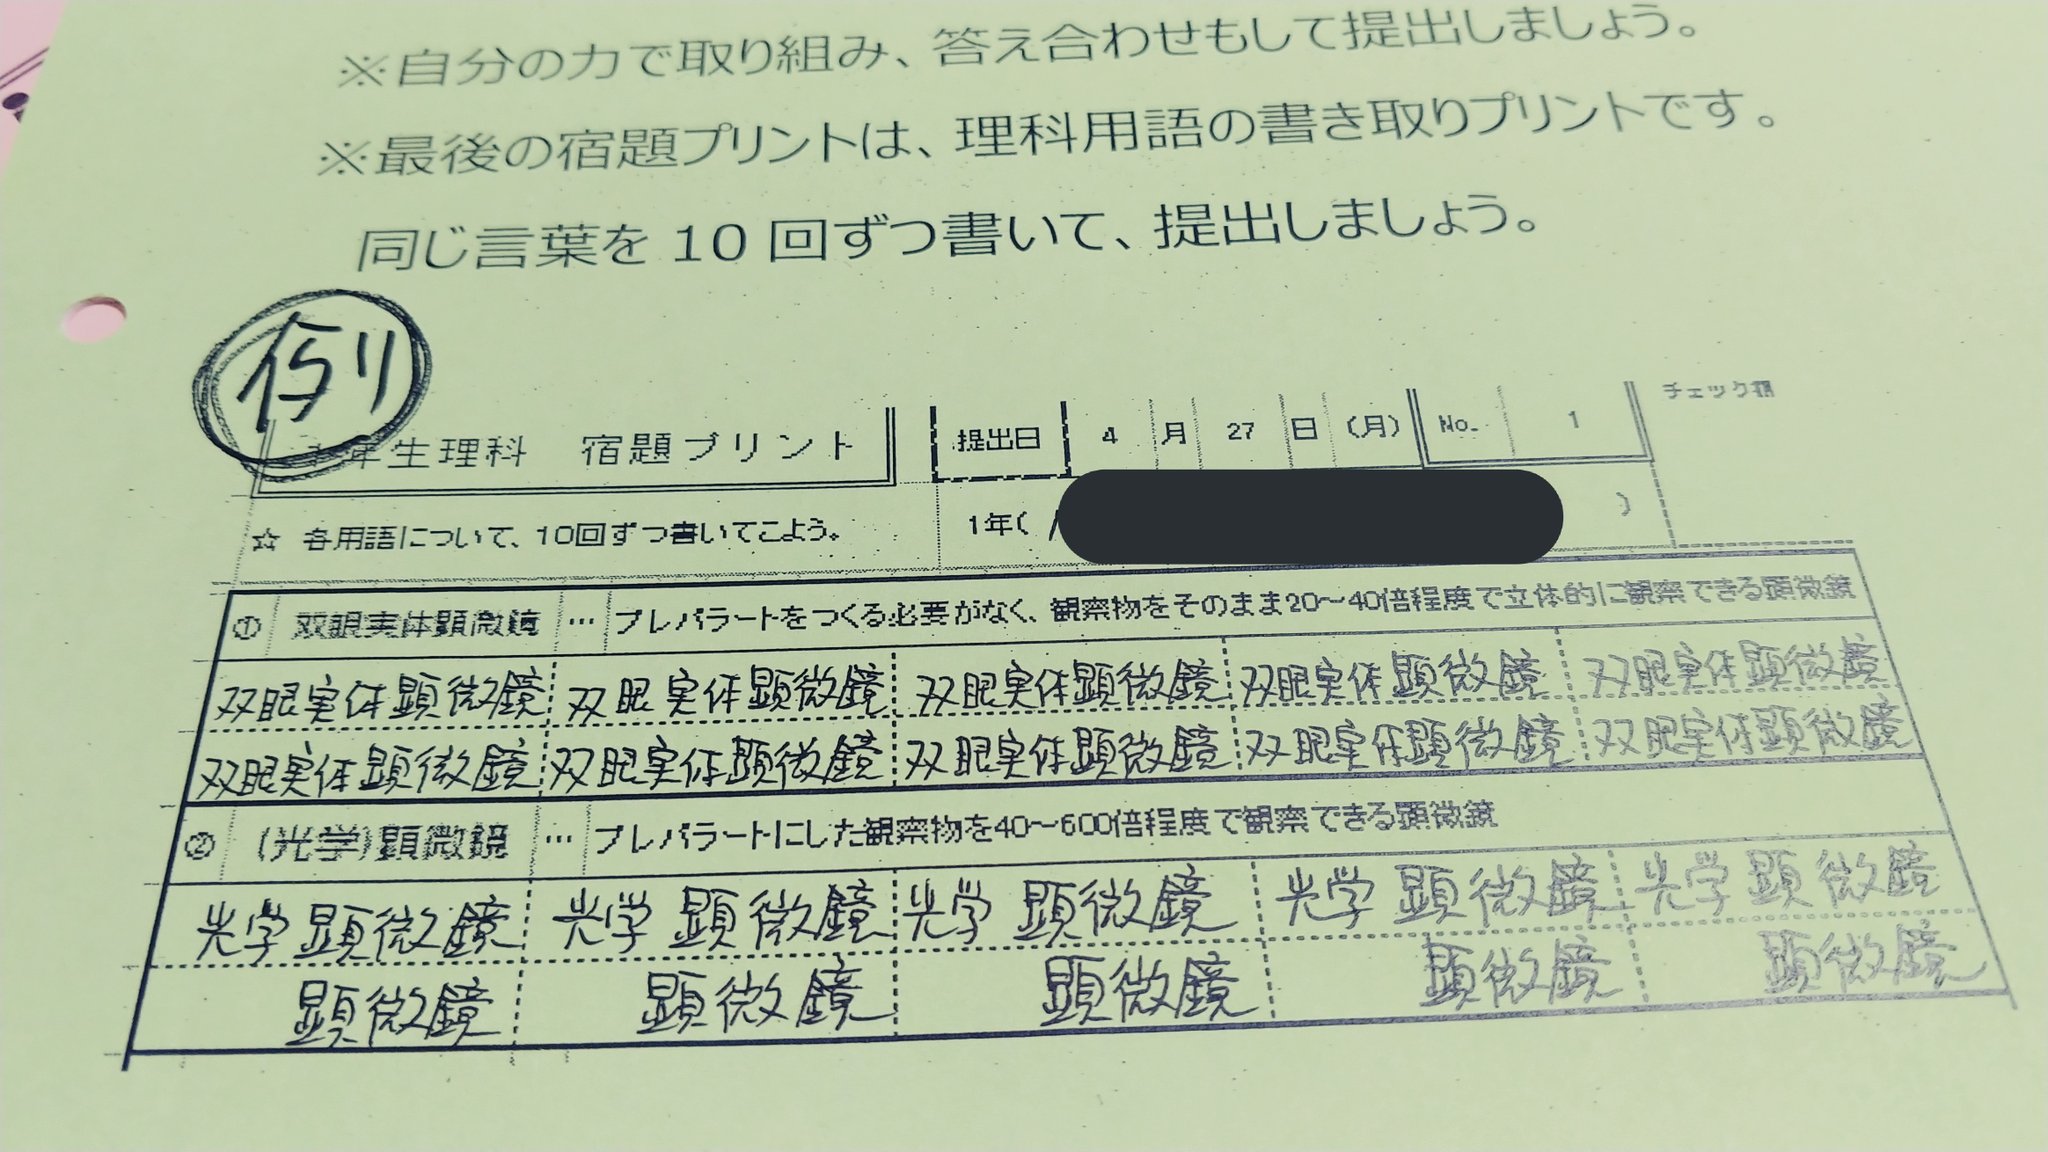 ※自分の力で取り組み、答え合わせもして提出しましょう。
※最後の宿題プリントは、理科用語の書き取りプリントです。
同じ言葉を 10 回ずつ書いて、提出しましょう。
例
年生理科 宿題プリント 提出日 4 月 27 日 (月) No. 1 チェック欄
☆ 各用語について、10回ずつ書いてこよう。 1年( )
① 双眼実体顕微鏡 … プレパラートをつくる必要がなく、観察物をそのまま20～40倍程度で立体的に観察できる顕微鏡
双眼実体顕微鏡 双眼実体顕微鏡 双眼実体顕微鏡 双眼実体顕微鏡 双眼実体顕微鏡
双眼実体顕微鏡 双眼実体顕微鏡 双眼実体顕微鏡 双眼実体顕微鏡 双眼実体顕微鏡
② (光学)顕微鏡 … プレパラートにした観察物を40～600倍程度で観察できる顕微鏡
光学 顕微鏡 光学 顕微鏡 光学 顕微鏡 光学 顕微鏡 光学 顕微鏡
顕微鏡 顕微鏡 顕微鏡 顕微鏡 顕微鏡